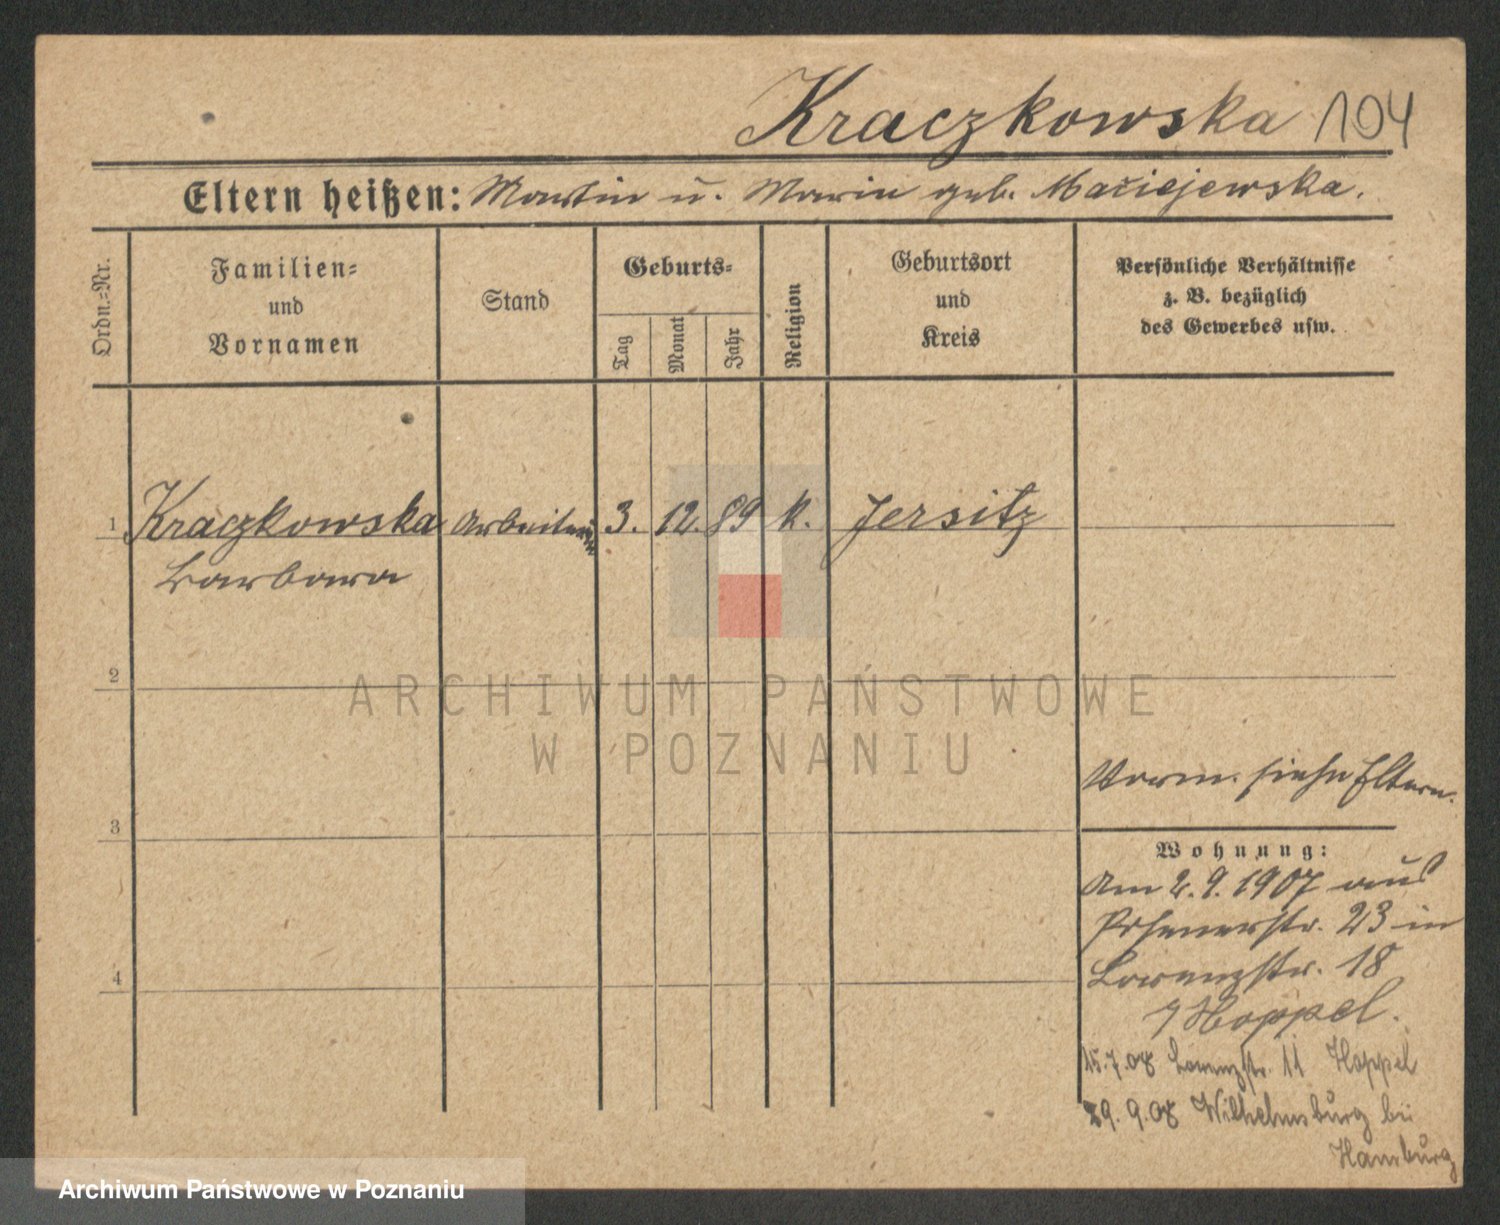 Kraczkowska 104
Eltern heißen: Martin u. Maria geb. Maciejewska.
Ordn.=Nr.
Familien=
und
Vornamen
Stand
Geburts=
Tag
Monat
Jahr
Religion
Geburtsort
und
Kreis
Persönliche Verhältnisse
z. B. bezüglich
des Gewerbes usw.
1 Kraczkowska Arbeiterin 3. 12. 89 k. Jersitz
Barbara
2
3
4
Vorm. siehe Eltern.
Wohnung:
Am 2.9.1907 aus
Posenerstr. 23 in
Lorenzstr. 18
Hoppel.
15.7.08 Lorenzstr. 11 Hoppel
29.9.08 Wilhelmsburg bei
Hamburg
ARCHIWUM PAŃSTWOWE
W POZNANIU
Archiwum Państwowe w Poznaniu